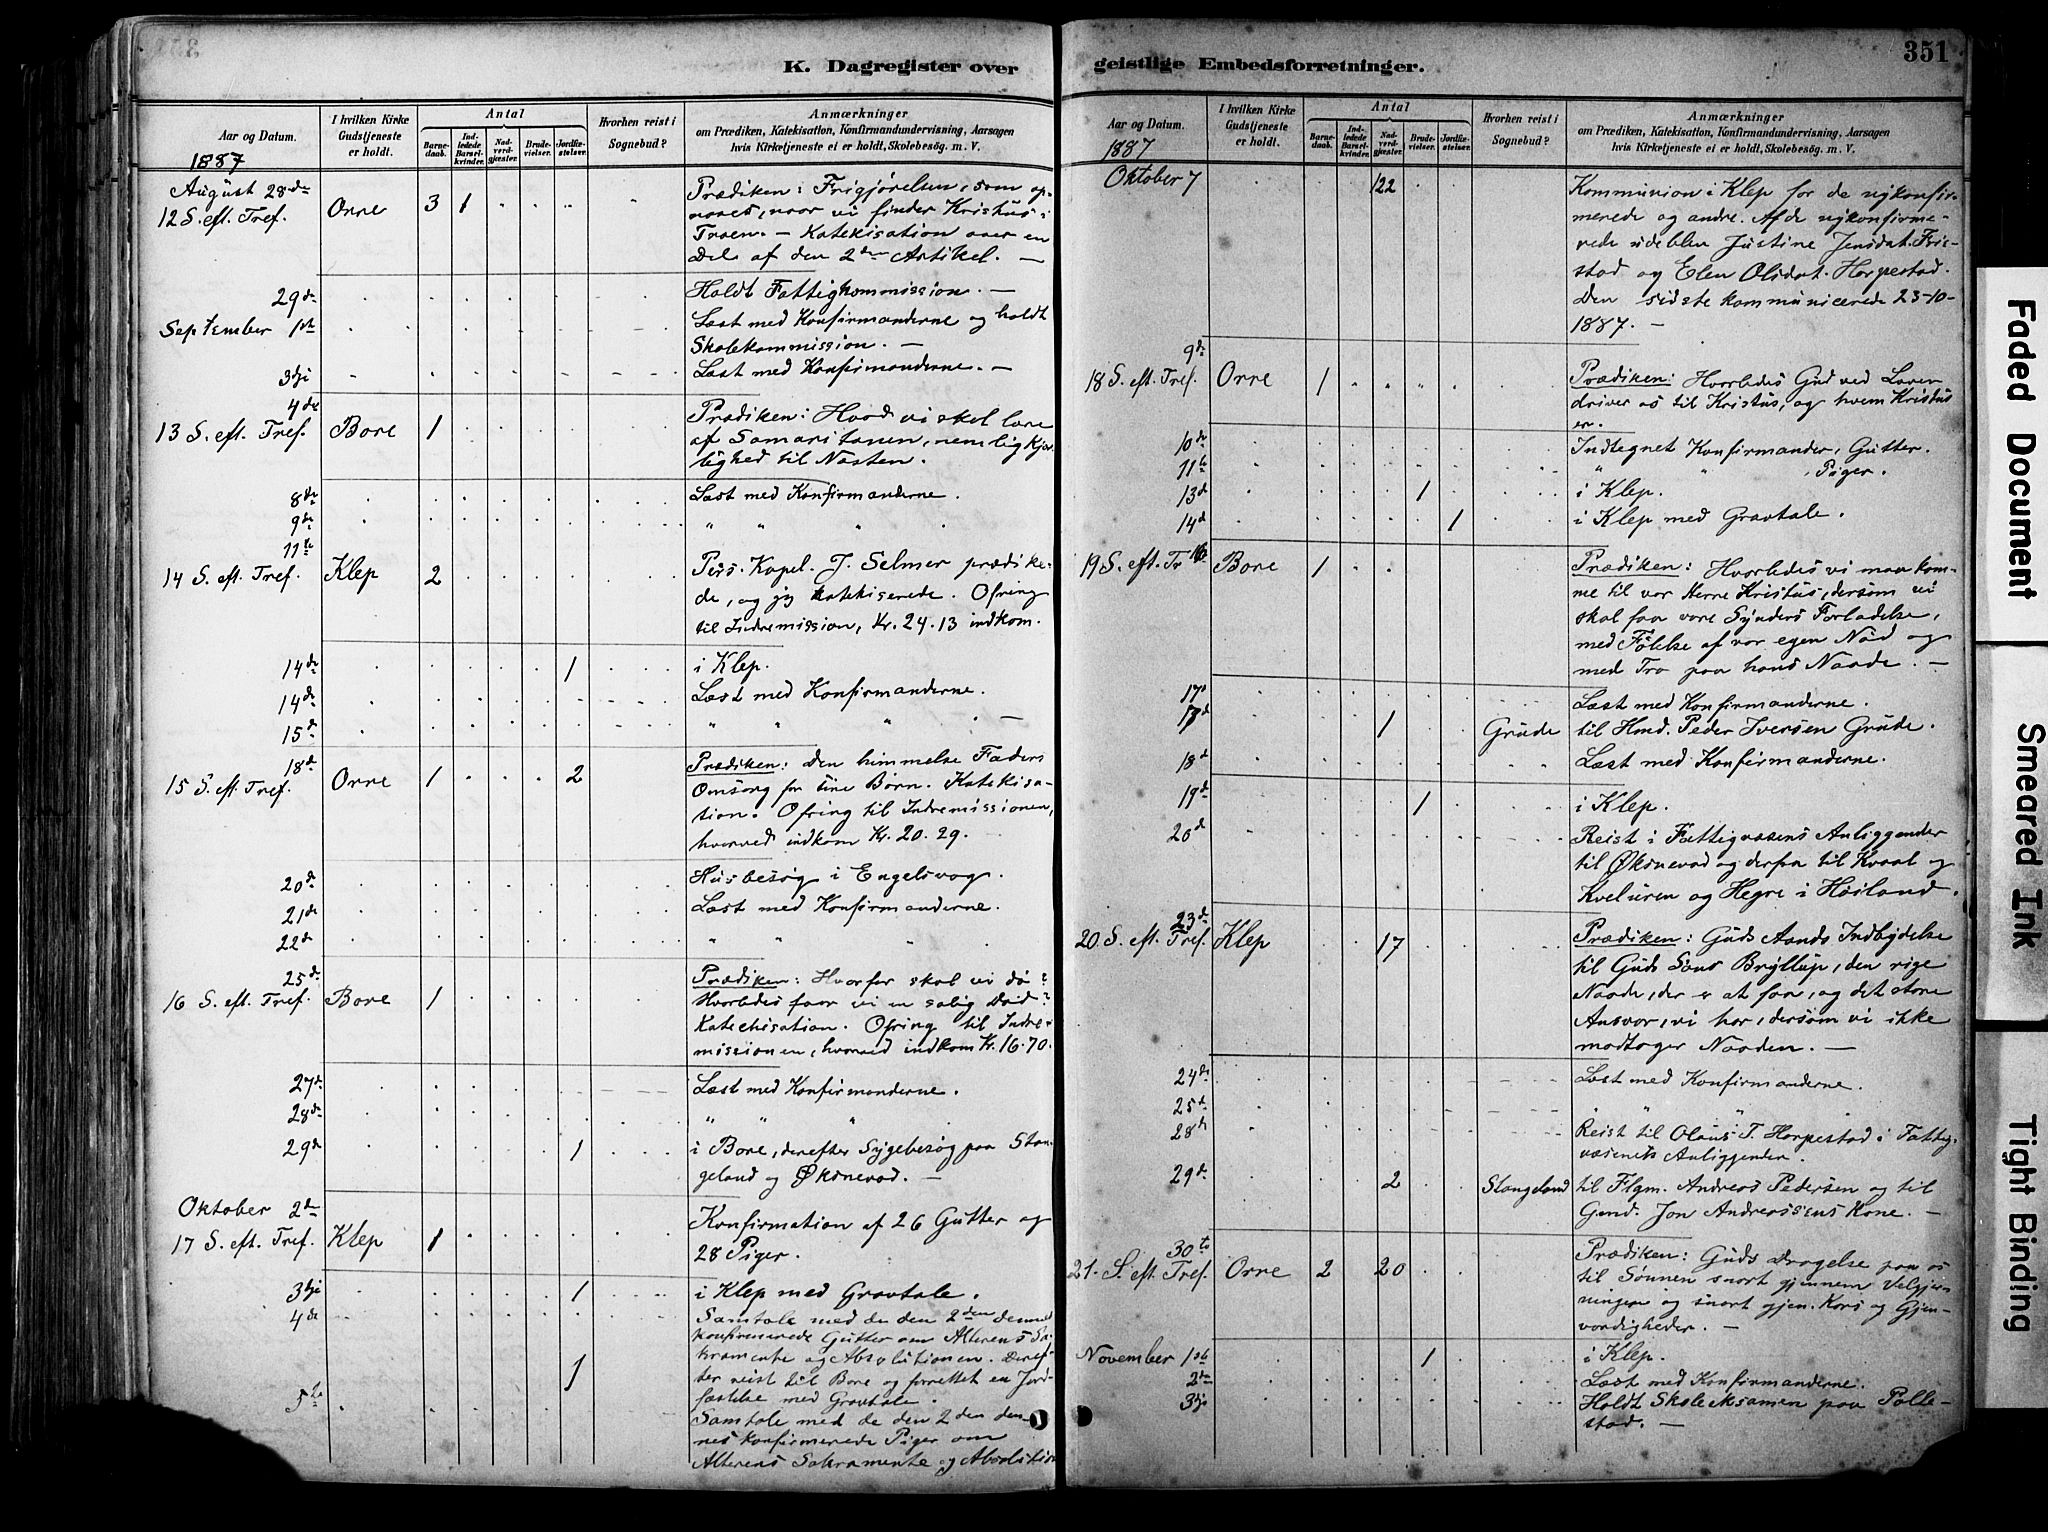 K. Dagregister over
Aar og Datum.
I hvilken Kirke Gudstjeneste er holdt.
Antal
Barnedaab.
Indledede Barselkvinder.
Nadverdgjæster.
Brudevielser.
Jordfæstelser.
Hvorhen reist i Sognebud?
Anmærkninger
om Prædiken, Katekisation, Konfirmandundervisning, Aarsagen
hvis Kirketjeneste ei er holdt, Skolebesøg. m. V.
1887
August 28de
12 S. eft. Tref. Orre 3 1 Prædiken: Frigjørelsen, som op-
naaes, naar vi finder Kristus i
Troen. – Katekisation over en
Del af den 2den Artikel. –
29de Holdt Fattigkommission. –
September 1ste Læst med Konfirmanderne og holdt
Skolekommission. –
3dje Læst med Konfirmanderne. –
4de
13 S. eft. Tref. Bore 1 Prædiken: Hvad vi skal lære
af Samaritanen, nemlig kjær-
lighed til Næsten.
8de Læst med Konfirmanderne.
9de " " "
11te
14 S. eft. Tref. Klep 2 Pers. Kapel. J. Selmer prædike-
de, og jeg katekiserede. Ofring
til Indremission, Kr. 24.13 indkom.
14de 1 i Klep.
14de Læst med Konfirmanderne.
15de " " " –
18de
15 S. eft. Tref. Orre 1 2 Prædiken: Den himmelske Faders
Omsorg for sine Børn. Katekisa-
tion. Ofring til Indremissionen,
hvorved indkom Kr. 20.29.
20de Husbesøg i Engelsvog.
21de Læst med Konfirmanderne.
22de " " "
25de
16 S. eft. Tref. Bore 1 Prædiken: Hvorfor skal vi dø?
Hvorledes faar vi en salig Død?
Katechisation. Ofring til Indre-
missionen, hvorved indkom Kr. 16.70.
27de Læst med Konfirmanderne.
28de " " "
29de 1 i Bore, derefter Sygebesøg paa Stan-
geland og Øksnevad. –
Oktober 2den
17 S. eft. Tref. Klep 1 Konfirmation af 26 Gutter og
28 Piger.
3dje 1 i Klep med Gravtale.
4de Samtale med de den 2den dennes
konfirmerede Gutter om Alterens Sa-
kramente og Absolutionen. Deref-
1 ter reist til Bore og forrettet en Jord-
fæstelse med Gravtale.
5te Samtale med de den 2den den-
nes konfirmerede Piger om
Alterens Sakramente og Absolution
geistlige Embedsforretninger.
351
Aar og Datum.
I hvilken Kirke Gudstjeneste er holdt.
Antal
Barnedaab.
Indledede Barselkvinder.
Nadverdgjæster.
Brudevielser.
Jordfæstelser.
Hvorhen reist i Sognebud?
Anmærkninger
om Prædiken, Katekisation, Konfirmandundervisning, Aarsagen
hvis Kirketjeneste ei er holdt, Skolebesøg. m. V.
1887
Oktober 7 122 Kommunion i Klep for de nykonfir-
merede og andre. Af de nykonfirme-
rede udeblev Justine Jensdat. Fris-
stad og Elen Olsdat. Horpestad.
Den sidste kommunicerede 23-10-
1887. –
9de
18 S. eft. Tref. Orre 1 Prædiken: Hvorledes Gud ved Loven
driver os til Kristus, og hvem Kristus
er.
10de Indtegnet Konfirmander, Gutter.
11te " " , Piger.
13de 1 i Klep.
14d 1 i Klep med Gravtale.
19 S. eft. Tr 16 Bore 1 Prædiken: Hvorledes vi maa kom-
me til vor Herre Kristus, dersom vi
skal faa vore Synders Forladelse,
med Følelse af vor egen Nød og
med Tro paa hans Naade. –
17de Læst med Konfirmanderne.
17d 1 Grude til Hmd. Peder Iversen Grude.
18d Læst med Konfirmanderne.
19de 1 i Klep.
20d Reist i Fattigvæsens Anliggender
til Øksnevad og derfra til Kvaal og
Kveluren og Hegre i Høiland.
23de
20 S. eft. Tref. Klep 17 Prædiken: Guds Aands Indbydelse
til Guds Søns Bryllup, den rige
Naade, der er at faa, og det store
Ansvar, vi har, dersom vi ikke
modtager Naaden. –
24de Læst med Konfirmanderne.
25de " " "
28de Reist til Olaus T. Horpestad i Fattig-
væsenets Anliggender.
29de 2 Stangeland til Flgm. Andreas Pedersen og til
Gmd. Jon Andreassens Kone. –
30te
21. S. eft. Tref. Orre 2 20 Prædiken: Guds Dragelse paa os
til Sønnen snart gjennem Velgjer-
ningen og snart gjen. Kors og Gjen-
vordigheder. –
November 1ste 1 i Klep.
2den Læst med Konfirmanderne.
3dje Holdt Skoleeksamen paa Polle-
stad. –
Faded Document
Smeared Ink
Tight Binding